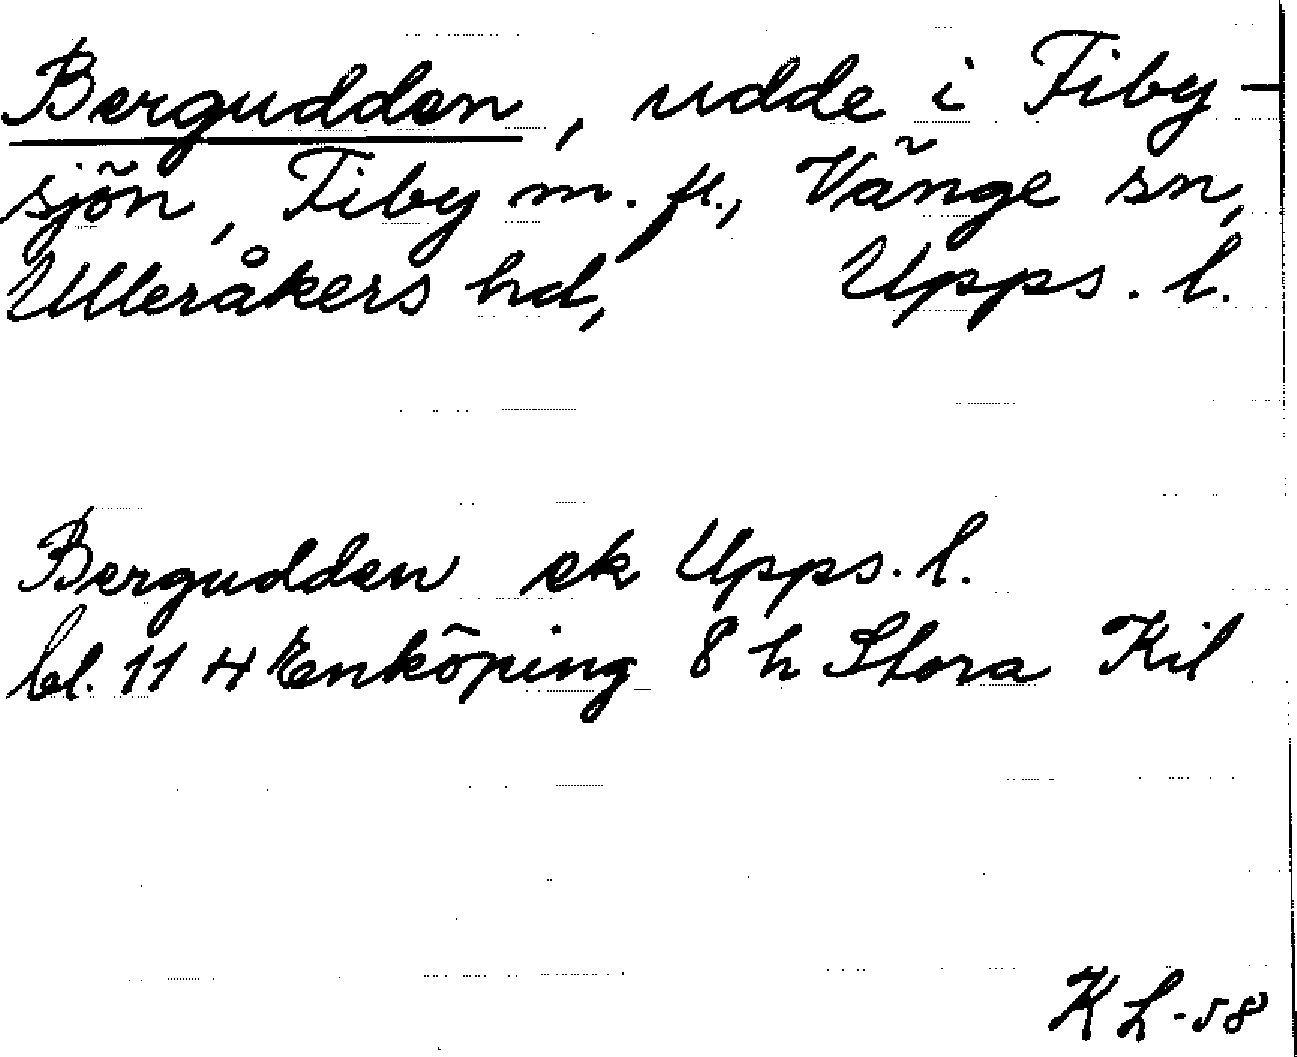 Bergudden, udde i Fiby-
sjön, Fiby m. fl., Vänge sn,
Ulleråkers hd, Upps. l.
Bergudden ek Upps. l.
bl. 11 H Enköping 8 h Stora Kil
KL-58